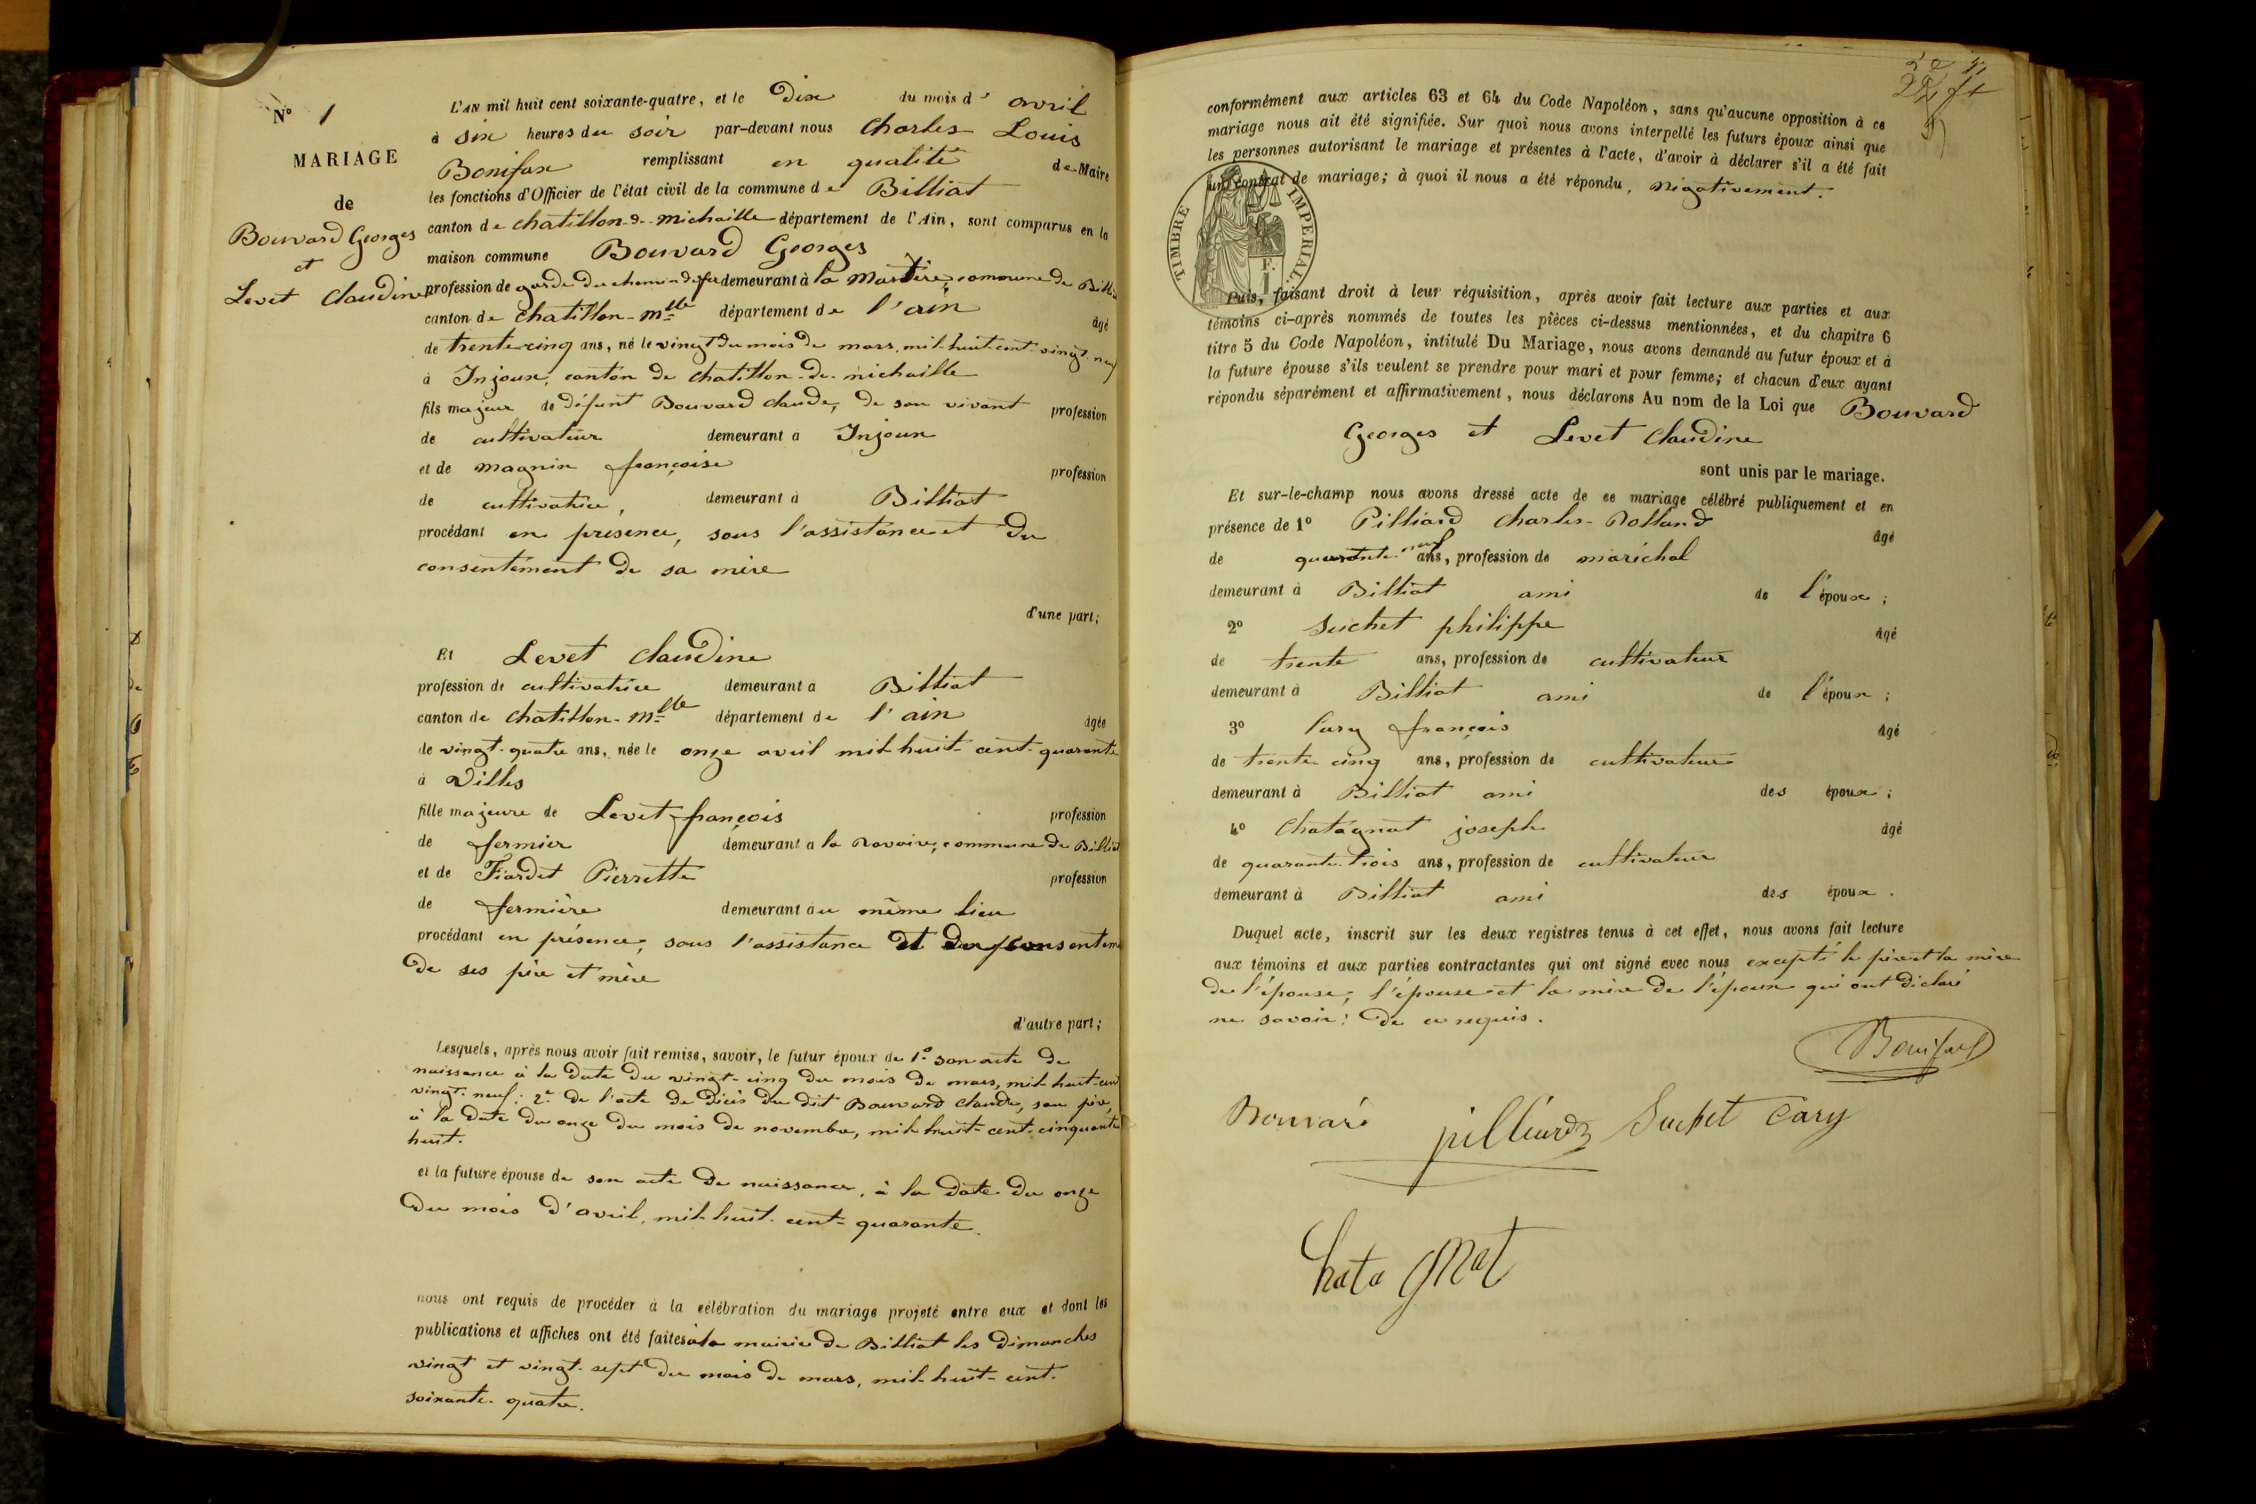 N° 1
MARIAGE
de
Bouvard Georges
et
Levet Claudine
L'AN mil huit cent soixante-quatre, et le dix du mois d' avril
à six heures du soir par-devant nous Charles Louis
Bonifax remplissant en qualité de Maire
les fonctions d'Officier de l'état civil de la commune de Billiat
canton de chatillon-de-michaille département de l'Ain, sont comparus en la
maison commune Bouvard Georges
profession de garde du chemin de fer demeurant à la commune de
canton de chatillon-mlle département de l'ain âgé
de trente-cinq ans, né le vingt du mois de mars, mil-huit-cent-vingt-neuf
à Injoux, canton de chatillon-de-michaille
fils majeur de défunt Bouvard Claude, de son vivant profession
de cultivateur demeurant à Injoux
et de magnin françoise profession
de cultivatrice, demeurant à Billiat
procédant en présence, sous l'assistance et du
consentement de sa mère
d'une part;
Et Levet Claudine
profession de cultivatrice demeurant à Billiat
canton de chatillon-mlle département de l'ain âgée
de vingt-quatre ans, née le onze avril mil-huit-cent-quarante
à Villes
fille majeure de Levet françois profession
de fermier demeurant à la commune de Billiat
et de Fiardet Pierrette profession
de fermière demeurant au même lieu
procédant en présence, sous l'assistance et du consentem
de ses père et mère
d'autre part;
Lesquels, après nous avoir fait remise, savoir, le futur époux de 1° son acte de
naissance à la date du vingt-cinq du mois de mars, mil-huit-cent
vingt-neuf; 2° de l'acte de décès du dit Bouvard Claude, son père,
à la date du onze du mois de novembre, mil-huit-cent-cinquante
huit.
et la future épouse de son acte de naissance, à la date du onze
du mois d'avril, mil-huit-cent-quarante.
nous ont requis de procéder à la célébration du mariage projeté entre eux et dont les
publications et affiches ont été faites à la mairie de Billiat les dimanches
vingt et vingt-sept du mois de mars, mil-huit-cent-
soixante-quatre.
conformément aux articles 63 et 64 du Code Napoléon, sans qu'aucune opposition à ce
mariage nous ait été signifiée. Sur quoi nous avons interpellé les futurs époux ainsi que
les personnes autorisant le mariage et présentes à l'acte, d'avoir à déclarer s'il a été fait
un contrat de mariage; à quoi il nous a été répondu, négativement.
TIMBRE IMPERIAL
Puis, faisant droit à leur réquisition, après avoir fait lecture aux parties et aux
témoins ci-après nommés de toutes les pièces ci-dessus mentionnées, et du chapitre 6
titre 5 du Code Napoléon, intitulé Du Mariage, nous avons demandé au futur époux et à
la future épouse s'ils veulent se prendre pour mari et pour femme; et chacun d'eux ayant
répondu séparément et affirmativement, nous déclarons Au nom de la Loi que Bouvard
Georges et Levet Claudine
sont unis par le mariage.
Et sur-le-champ nous avons dressé acte de ce mariage célébré publiquement et en
présence de 1° Pilliard Charles-Rolland âgé
de quarante-neuf ans, profession de maréchal
demeurant à Billiat ami de l'époux;
2° Suchet philippe âgé
de trente ans, profession de cultivateur
demeurant à Billiat ami de l'époux;
3° Cary françois âgé
de trente cinq ans, profession de cultivateur
demeurant à Billiat ami des époux;
4° Chatagnat joseph âgé
de quarante-trois ans, profession de cultivateur
demeurant à Billiat ami des époux.
Duquel acte, inscrit sur les deux registres tenus à cet effet, nous avons fait lecture
aux témoins et aux parties contractantes qui ont signé avec nous excepté le père et la mère
de l'épouse, l'épouse et la mère de l'époux qui ont déclaré
ne savoir; de ce requis.
Bonifax
Bouvard
pilliard Suchet Cary
Chatagnat